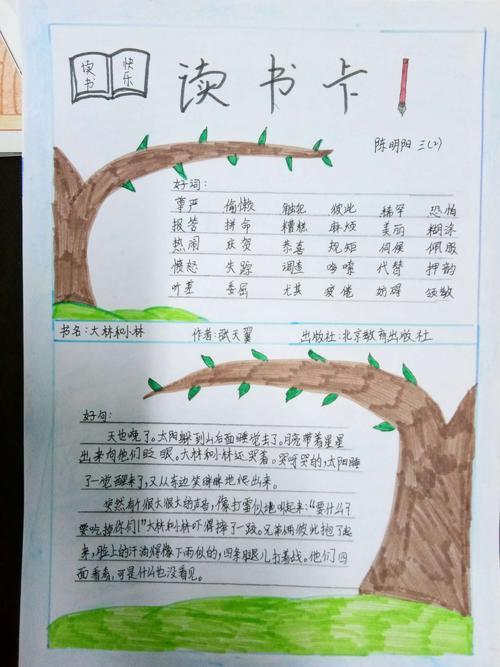 读书 快乐
读书卡
陈明阳 三(2)
好词:
尊严 偷懒 触犯 彼此 稀罕 恐怕
报答 拼命 糟糕 麻烦 美丽 糊涂
热闹 庆贺 恭喜 规矩 伺候 佩服
愤怒 失踪 调查 咕噜 代替 押韵
叶茎 委屈 尤其 疲倦 妨碍 领教
书名:大林和小林 作者:张天翼 出版社:北京教育出版社
好句:
天也晚了。太阳躲到山后面睡觉去了。月亮带着星星
出来向他们眨眼。大林和小林还哭着。哭呀哭的,太阳睡
了一觉醒来了,又从东边笑眯眯地爬出来。
突然有个很大很大的声音,像打雷似地吼起来:“要什么?
要吃掉你们!”大林和小林吓得摔了一跤。兄弟俩彼此抱了起
来,脸上的汗油焊像下雨似的,四条腿儿打着战。他们四
面看看,可是什么也没看见。